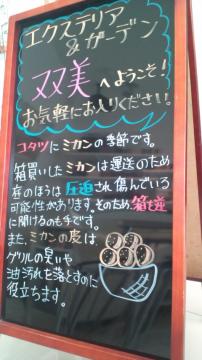 エクステリア
&ガーデン
双美へようこそ!
お気軽にお入りください。
コタツにミカンの季節です。
箱買いしたミカンは運送のため
底のほうは圧迫され傷んでいる
可能性があります。そのため箱を逆
に開けるのも手です。
また、ミカンの皮は
グリルの臭いや
油汚れを落とすのに
役立ちます。